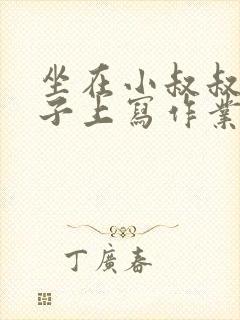 坐在小叔叔
子上寫作業
丁廣春